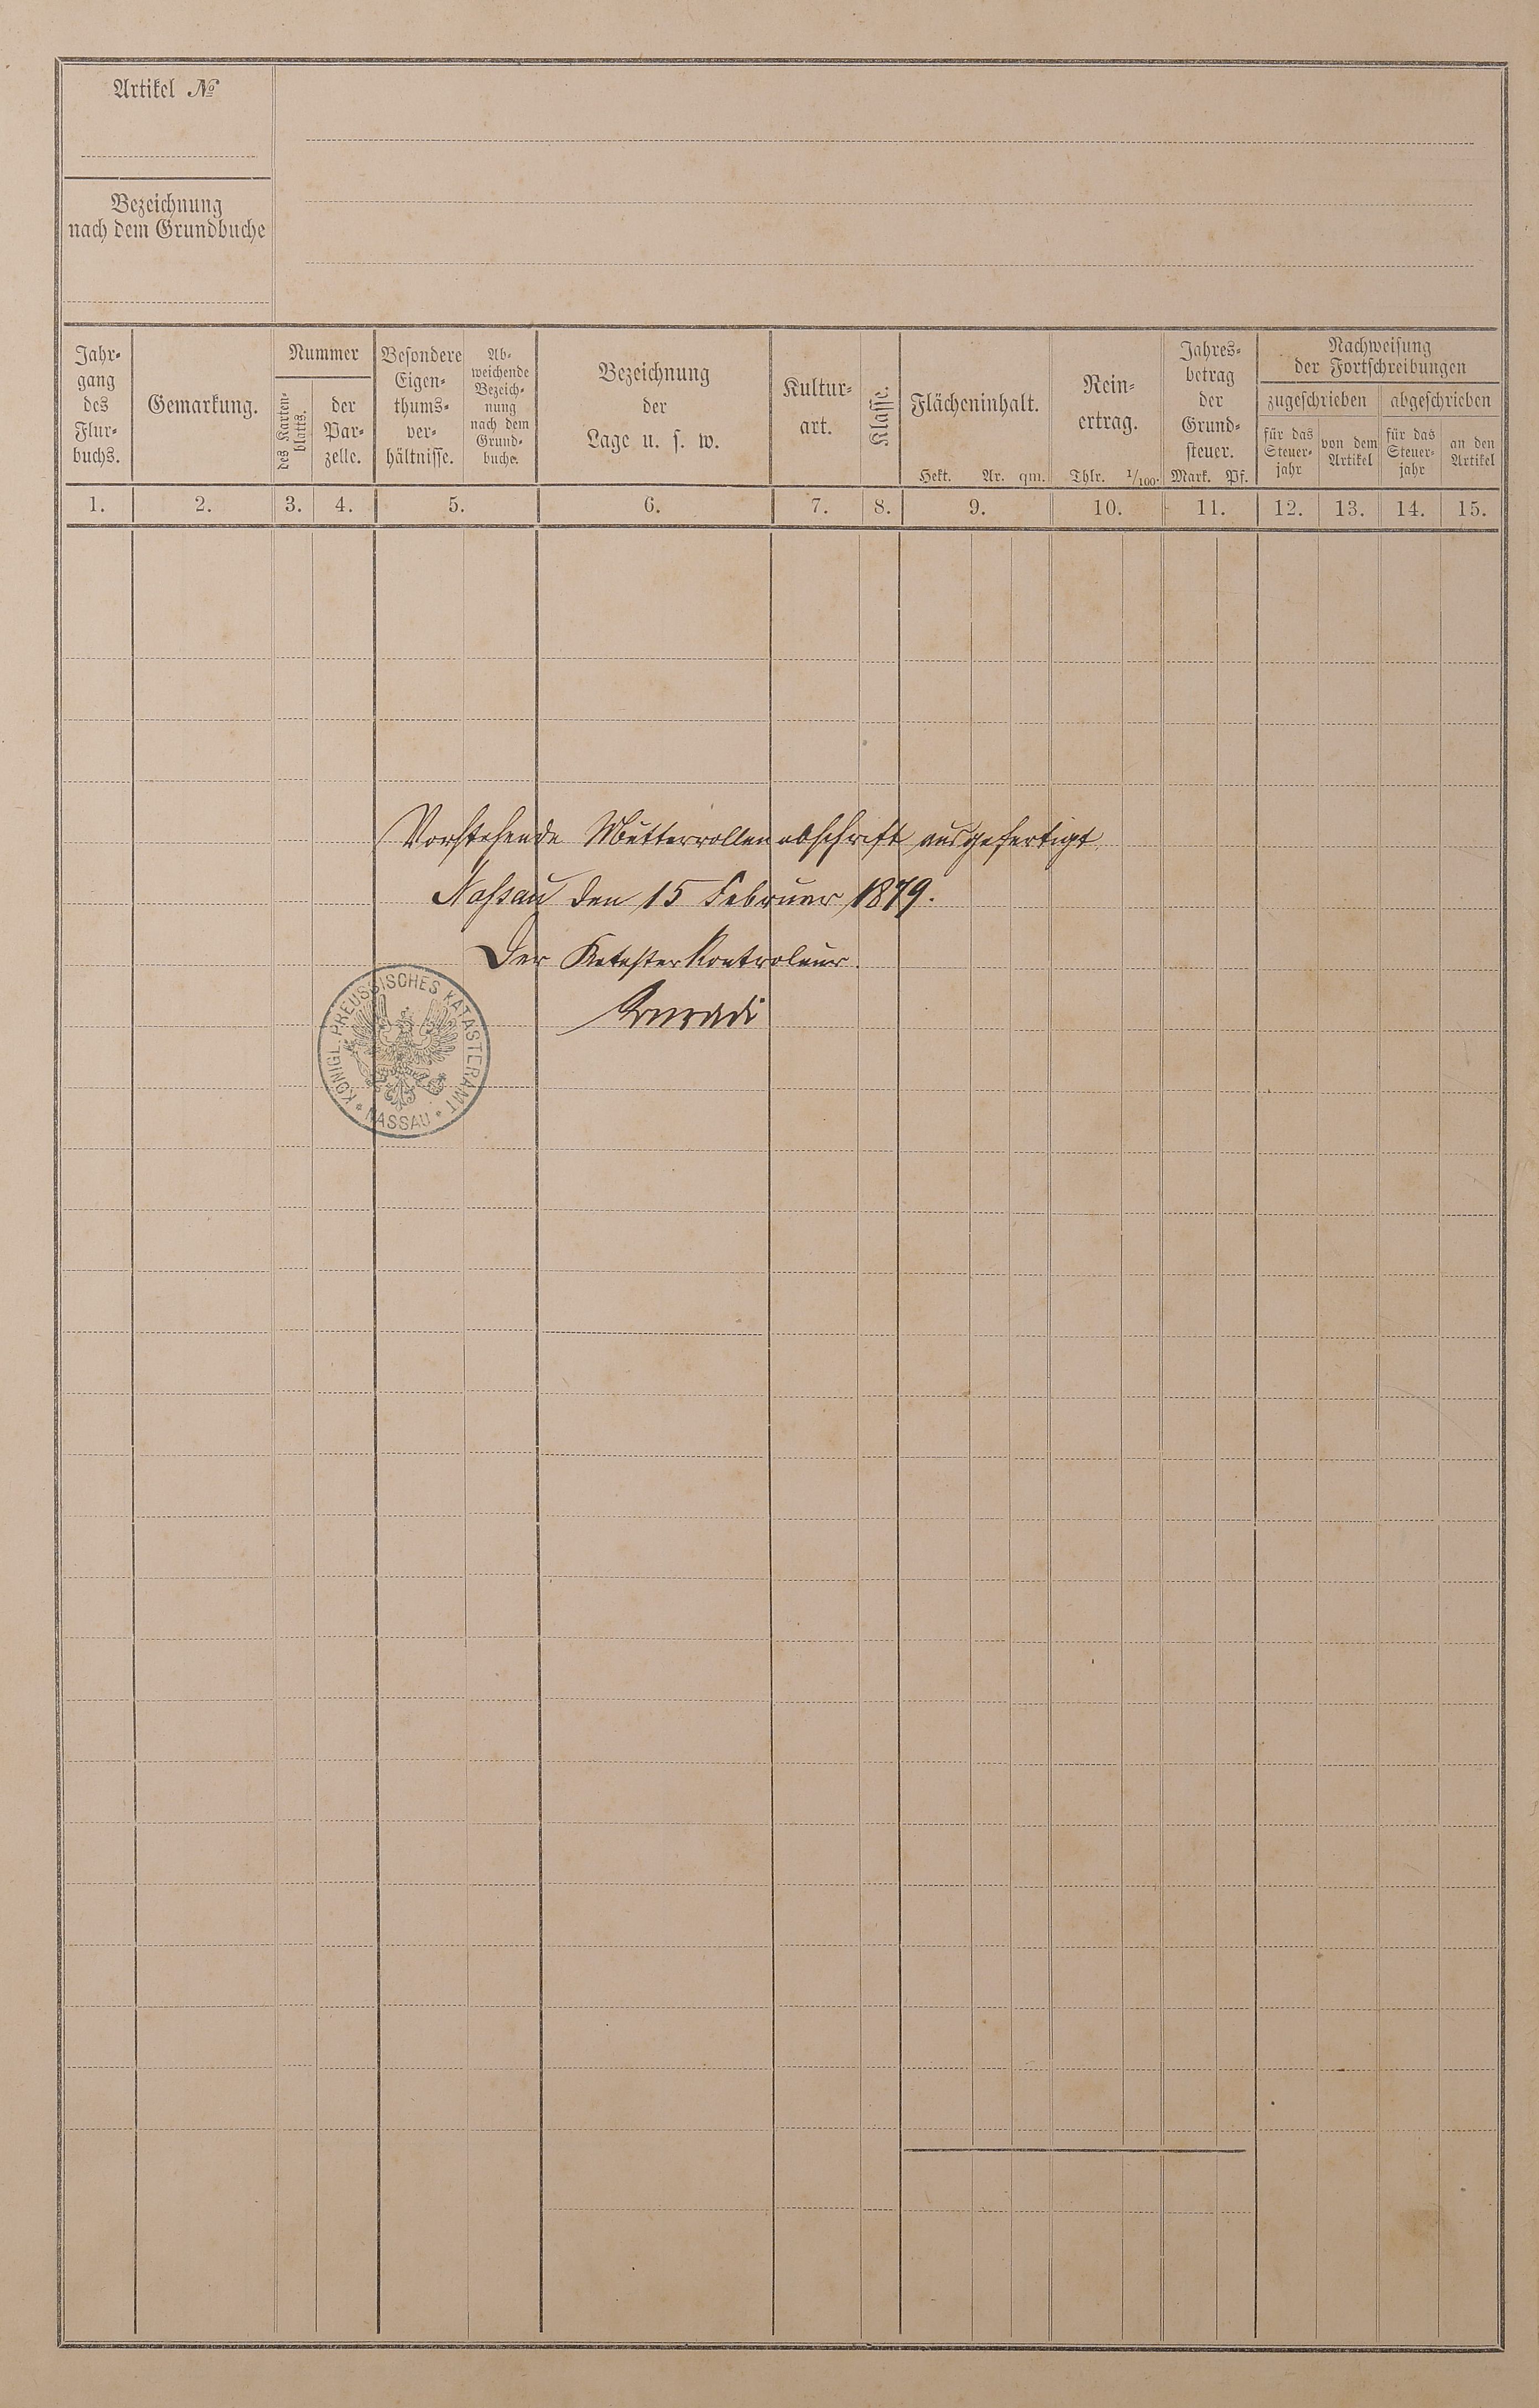 Artikel №
Bezeichnung
nach dem Grundbuche
Jahr-
gang
des
Flur-
buchs.
Gemarkung.
Nummer
des Karten-
blatts.
der
Par-
zelle.
Besondere
Eigen-
thums-
ver-
hältnisse.
Ab-
weichende
Bezeich-
nung
nach dem
Grund-
buche.
Bezeichnung
der
Lage u. s. w.
Kultur-
art.
Klasse.
Flächeninhalt.
Hekt. Ar. qm.
Rein-
ertrag.
Thlr. 1/100.
Jahres-
betrag
der
Grund-
steuer.
Mark. Pf.
Nachweisung
der Fortschreibungen
zugeschrieben
abgeschrieben
für das
Steuer-
jahr
von dem
Artikel
für das
Steuer-
jahr
an den
Artikel
1. 2. 3. 4. 5. 6. 7. 8. 9. 10. 11. 12. 13. 14. 15.
Vorstehende Mutterrollenabschrift ausgefertigt
Nassau den 15 Februar 1879.
Der Katasterkontroleur.
KÖNIGL. PREUSSISCHES KATASTERAMT
* NASSAU *